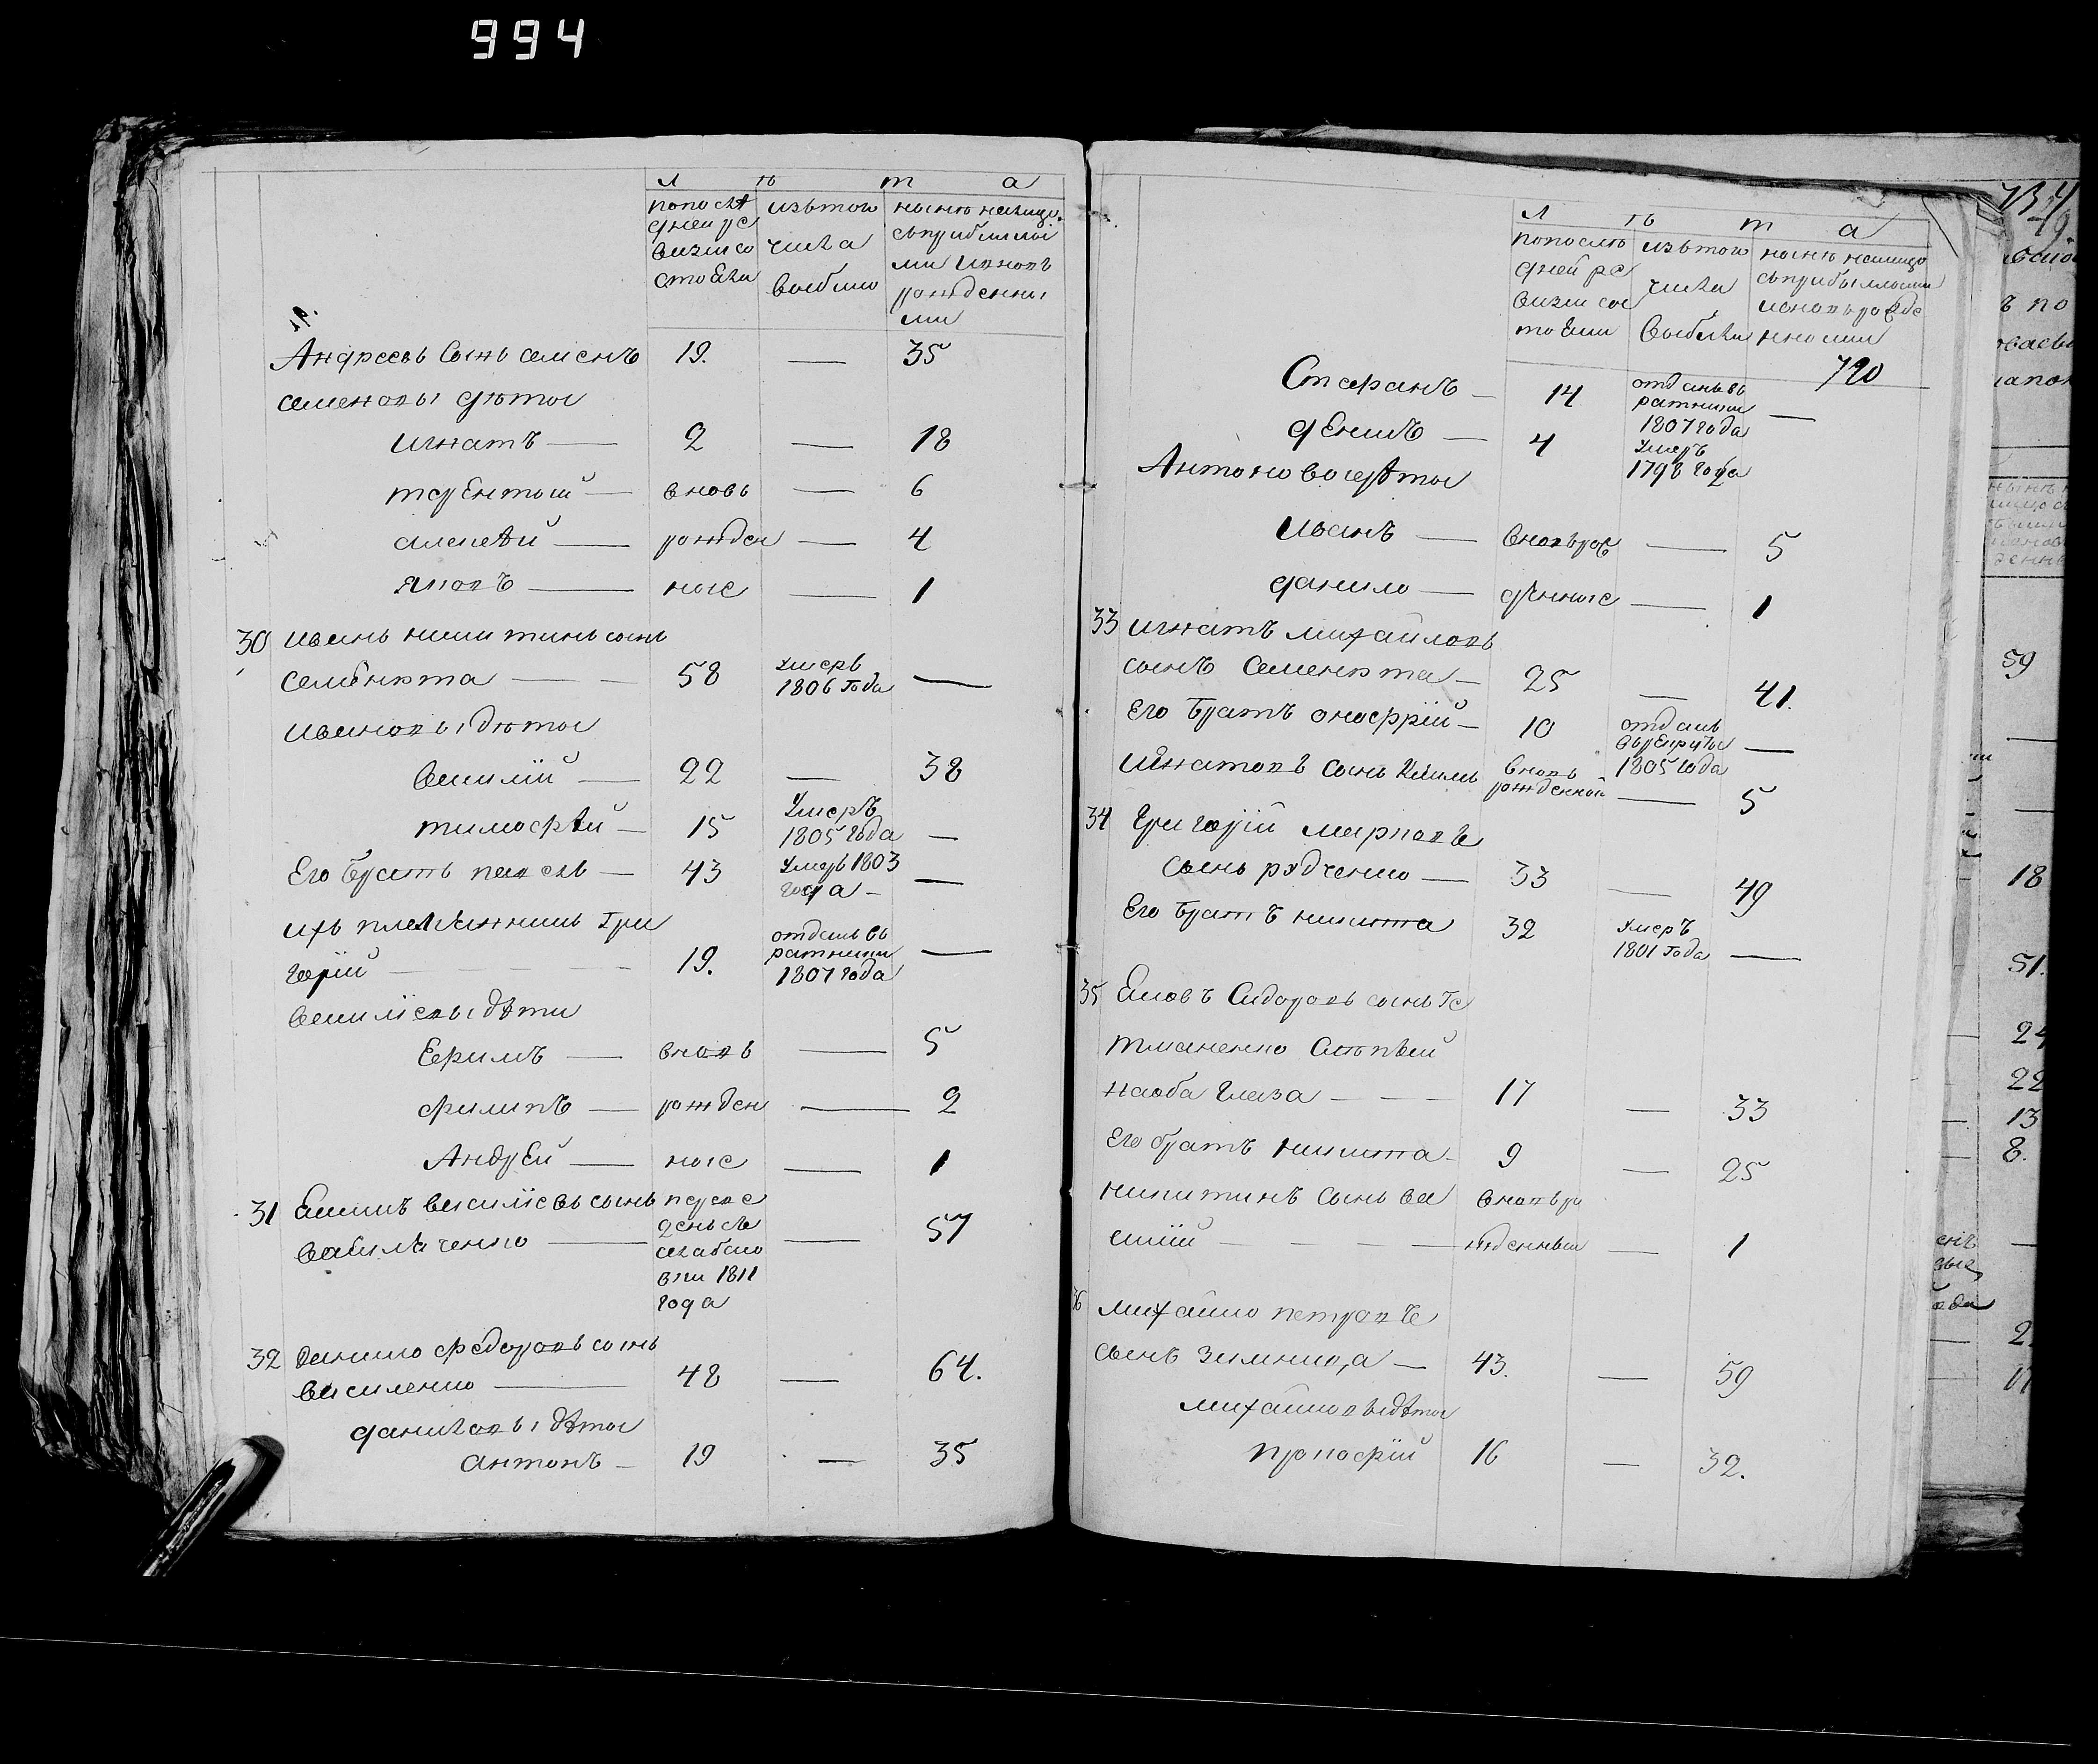 994
л ѣ т а
по послѣ
дней ре
визии со
стояли
изъ того
числа
выбыло
ныне налицо
съ прибылы
ми и вновь
рожденны
ми
Андреевъ сынъ семенъ 19. — 35
семеновы дѣты
игнатъ — 2 — 18
терентый — вновь — 6
алексѣй — рожден — 4
яковъ — ные — 1
30 иванъ никитинъ сынъ
семенюта — 58 умеръ 1806 года —
ивановы дѣты
василий — 22 — 38
тимофѣй — 15 Умеръ 1805 года —
Его братъ павелъ — 43 Умеръ 1803 года —
ихъ племянникъ Гри
горий — 19. отданъ въ ратники 1807 года —
василиевы дѣти
Ефимъ — вновь — 5
филипъ — рожден — 2
Андрей — ные — 1
31 василиевъ сынъ
василченко — переве денъ съ слабью вки 1811 года — 57
32 данило федоровъ сынъ
василенко — 48 — 64.
даниловы дѣты
антонъ — 19 — 35
л ѣ т а
по послѣ
дней ре
визии сос
тояли
изъ того
числа
выбыли
ныне налицо
съ прибылыми
и вновь рожде
нными
720
Стефанъ — 14 отданъ въ ратники 1807 года —
денисъ — 4 Умеръ 1798 года
Антоновы дѣты
иванъ — вновь рож — 5
данило — денные — 1
33 игнатъ михайловъ
сынъ семенюта — 25 — 41.
Его братъ онофрий — 10 отданъ въ рекруты 1805 года —
игнатовъ сынъ вновь рожденной — 5
34 григорий марковъ
сынъ рудченко — 33 — 49
Его братъ никита 32 Умеръ 1801 года —
35 сидоровъ сынъ ге
тманенко слѣпый
на оба глаза — 17 — 33
Его братъ никита — 9 — 25
никитинъ сынъ ва вновь ро
силий — жденный — 1
36 михайло петровъ
сынъ — 43. — 59
михайловы дѣты
прокофий 16 — 32.
734
59
18
51.
24
22
13
8.